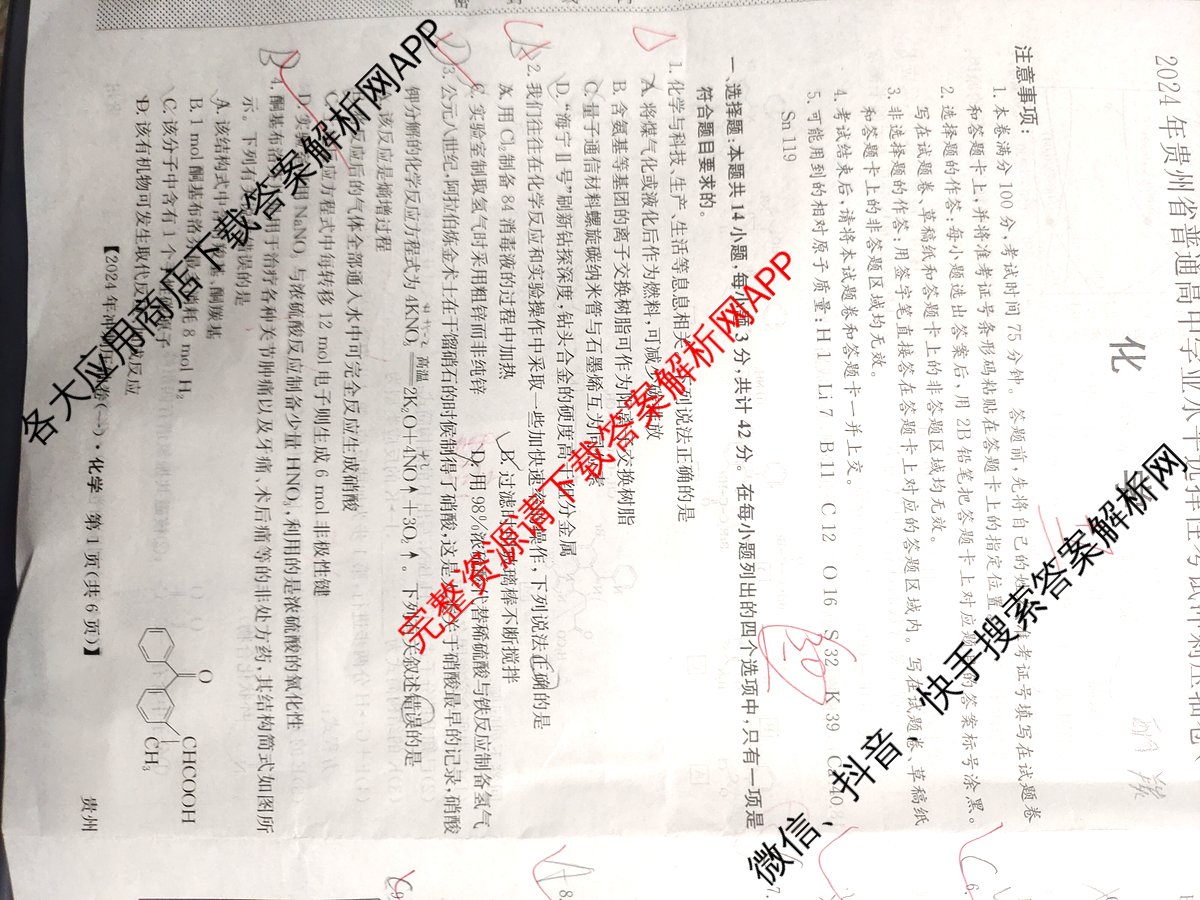 2024年贵州省普通高中学业水平选择性考试冲刺压轴卷
化
注意事项：
1.本卷满分100分，考试时间75分钟。答题前，先将自己的
考证号填写在试题卷
和答题卡上，并将准考证号条形码粘贴在答题卡上的指定位置
2.选择题的作答：每小题选出答案后，用2B铅笔把答题卡上对应题
的答案标号涂黑。
写在试题卷、草稿纸和答题卡上的非答题区域均无效。
3.非选择题的作答：用签字笔直接答在答题卡上对应的答题区内。写在试题卷、草稿纸
和答题卡上的非答题区域均无效。
4.考试结束后，请将本试题卷和答题卡一并上交。
5.可能用到的相对原子质量：H 1 Li 7 B 11 C 12 O 16 S 32 K 39 Ca 40
Sn 119
一、选择题：本题共14小题，每小题3分，共计42分。在每小题列出的四个选项中，只有一项是
符合题目要求的。
1.化学与科技、生产、生活等息息相关
列说法正确的是
A.将煤气化或液化后作为燃料，可减
排放
B.含氨基等基团的离子交换树脂可作为
交换树脂
C.量子通信材料螺旋碳纳米管与石墨烯互为同
素
D.“海宁Ⅱ号”刷新钻探深度，钻头合金的硬度高于组分金属
2.我们往往在化学反应和实验操作中采取一些加快速
的操作，下列说法正确的是
A.用Cl₂制备84消毒液的过程中加热
B.过滤时
玻璃棒不断搅拌
C.实验室制取氢气时采用粗锌而非纯锌
D.用98%浓
代替稀硫酸与铁反应制备氢气
3.公元八世纪，阿拉伯炼金术士在干馏硝石的时候制得了硝酸，这是
关于硝酸最早的记录，硝酸
钾分解的化学反应方程式为4KNO₃ 高温 2K₂O+4NO↑+3O₂↑。下列
关叙述错误的是
该反应是熵增过程
反应后的气体全部通入水中可完全反应生成硝酸
应方程式中每转移12 mol电子则生成6 mol非极性键
D.实
用NaNO₃与浓硫酸反应制备少量HNO₃，利用的是浓硫酸的氧化性
4.酮基布洛
用于治疗各种关节肿痛以及牙痛、术后痛等的非处方药，其结构简式如图所
示。下列有
误的是
A.该结构式中
酮羰基
B.1 mol酮基布洛芬
消耗8 mol H₂
C.该分子中含有1个
原子
D.该有机物可发生取代反
成反应
O
CHCOOH
CH₃
【2024年冲刺压轴卷（一）·化学 第1页（共6页）】
贵州
6.
7.
8.
9.
各大应用商店下载答案解析网APP
完整资源请下载答案解析网APP
微信、抖音、快手搜索答案解析网